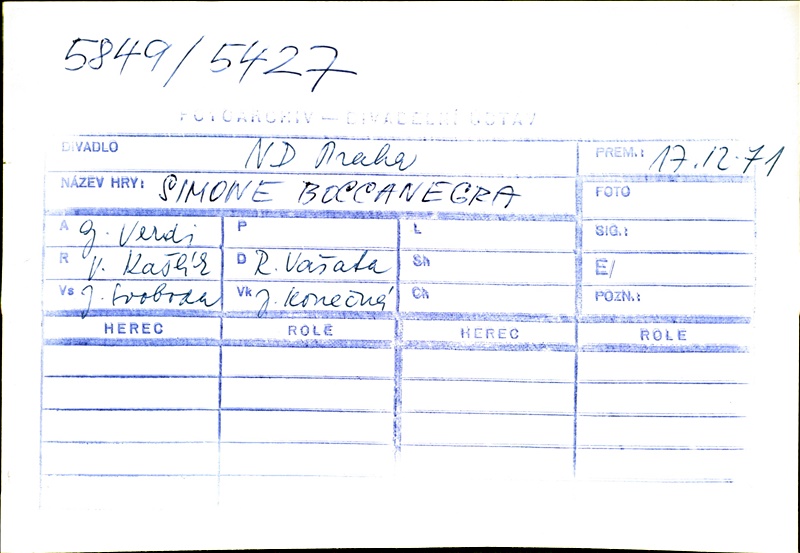 5849/5427
FOTOARCHIV — DIVADELNÍ ÚSTAV
DIVADLO ND Praha PREM.: 17.12.71
NÁZEV HRY: SIMONE BOCCANEGRA FOTO
A G. Verdi P L SIG.:
R V. Kašlík D R. Vašata Sh E/
Vs J. Svoboda Vk J. Konečná Ch POZN.:
HEREC ROLE HEREC ROLE